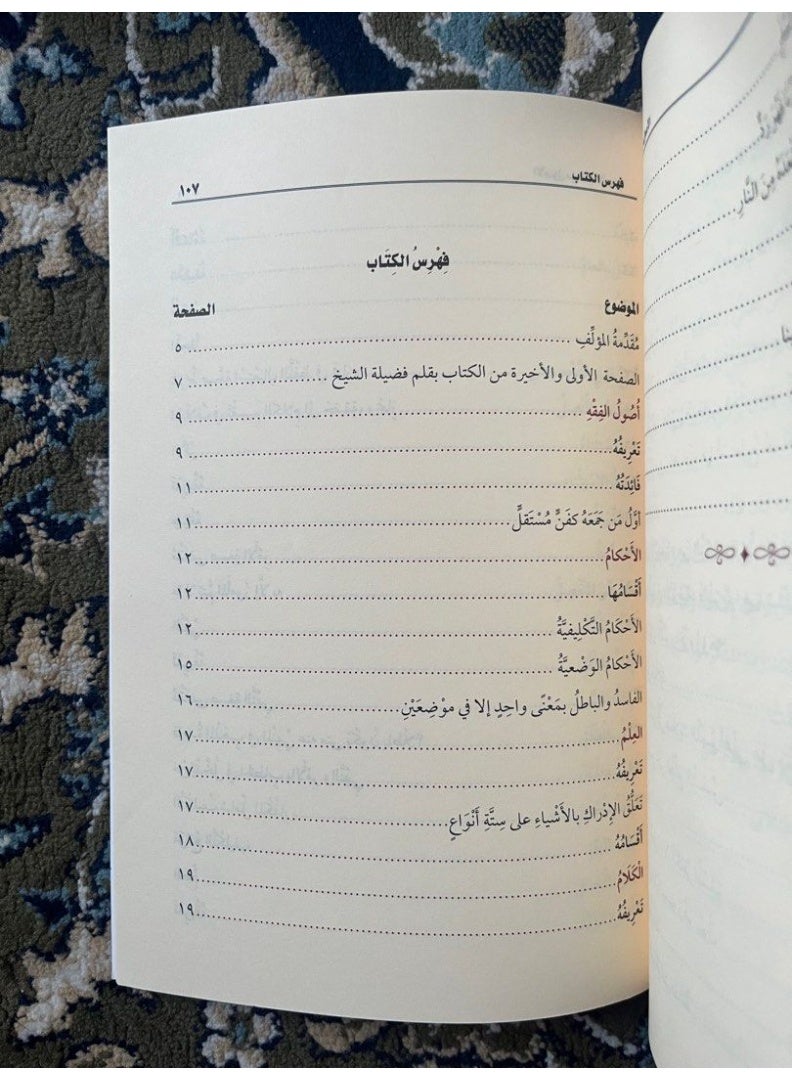 فهرس الكتاب ١٠٧
فِهْرِسُ الكِتَاب
الموضوع الصفحة
مُقَدِّمةُ المؤلِّفِ ٥
الصفحة الأولى والأخيرة من الكتاب بقلم فضيلة الشيخ ٧
أُصُولُ الفِقْهِ ٩
تَعْرِيفُهُ ٩
فَائِدَتُهُ ١١
أوَّلُ مَن جَمَعَهُ كفَنٍّ مُسْتَقلٍّ ١١
الأَحْكامُ ١٢
أَقْسَامُهَا ١٢
الأَحْكامُ التَّكْلِيفيَّةُ ١٢
الأَحْكامُ الوَضْعيَّةُ ١٥
الفاسدُ والباطلُ بمَعْنًى واحِدٍ إلا في موْضِعَيْنِ ١٦
العِلْمُ ١٧
تَعْرِيفُهُ ١٧
تَعَلُّقُ الإدْراكِ بالأَشْياءِ على سِتَّةِ أَنْوَاعٍ ١٧
أَقْسَامُهُ ١٨
الْكَلَامُ ١٩
تَعْرِيفُهُ ١٩
مِنَ النَّارِ